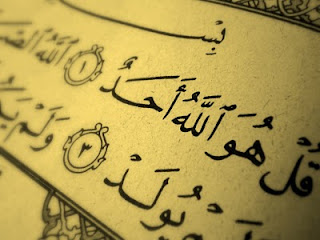 بِسْ
قُلْ هُوَ ٱللَّهُ أَحَدٌ ١ ٱللَّهُ ٱلصَّ
يُولَدْ ٣ وَلَمْ يَكُ